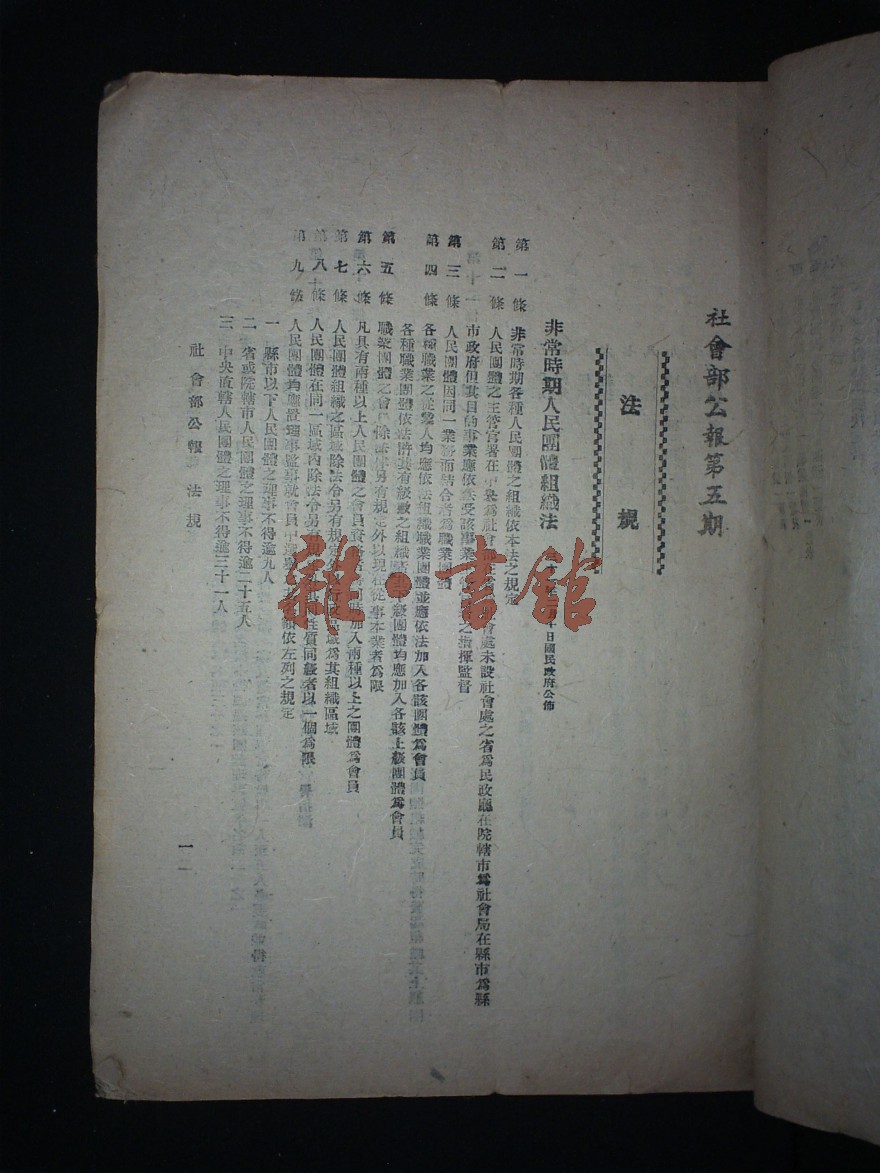 社會部公報第五期
法規
非常時期人民團體組織法 日國民政府公佈
第一條 非常時期各種人民團體之組織依本法之規定
第二條 人民團體之主管官署在中央為社會 會處未設社會處之省為民政廳在院轄市為社會局在縣市為縣
市政府但其目的事業應依法受該事業 之指揮監督
第三條 人民團體因同一業務而結合者為職業團體
第四條 各種職業之從業人均應依法組織職業團體並應依法加入各該團體為會員
各種職業團體依法許其有級數之組織者 級團體均應加入各該上級團體為會員
第五條 職業團體之會員除法律另有規定外以現在從事本業者為限
第六條 凡具有兩種以上人民團體之會員資格者 同時加入兩種以上之團體為會員
第七條 人民團體組織之區域除法令另有規定外 行政區域為其組織區域
第八條 人民團體在同一區域內除法令另有規 性質同級者以一個為限
第九條 人民團體均應置理事監事就會員中選舉 名額依左列之規定
一 縣市以下人民團體之理事不得逾九人
二 省或院轄市人民團體之理事不得逾二十五人
三 中央直轄人民團體之理事不得逾三十一人
社會部公報 法規
一一
雜·書館